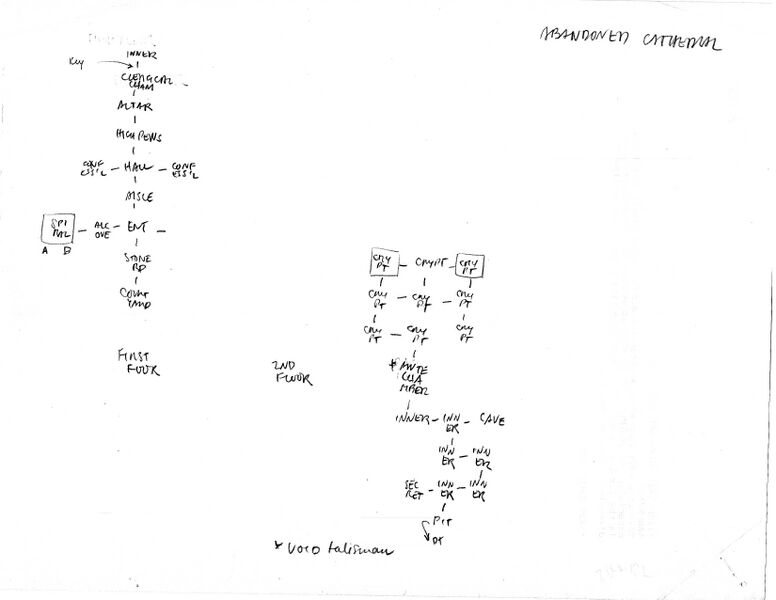 ABANDONED CATHEDRAL
INNER
Key
CLERGICAL
CHAM
ALTAR
HIGH PEWS
CONF
ESS'L
HALL
CONF
ESS'L
AISLE
SPI
RAL
ALC
OVE
ENT
A B
STONE
RD
COURT
YARD
FIRST
FLOOR
2ND
FLOOR
CRY
PT
CRYPT
CRY
PT
CRY
PT
CRY
PT
CRY
PT
CRY
PT
CRY
PT
CRY
PT
* ANTE
CHA
MBER
INNER
INN
ER
CAVE
INN
ER
INN
ER
SEC
RET
INN
ER
INN
ER
PIT
DT
* VOID talisman